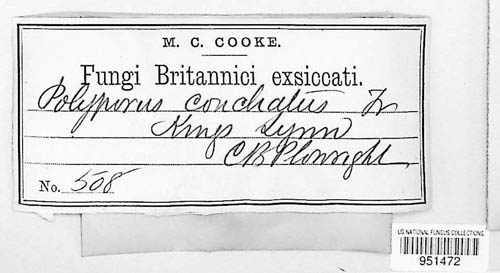 M. C. COOKE.
Fungi Britannici exsiccati.
Polyporus conchatus Fr
Kings Lynn
C B Plowright
No. 508
US NATIONAL FUNGUS COLLECTIONS
951472